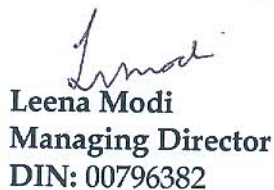 Leena Modi
Managing Director
DIN: 00796382